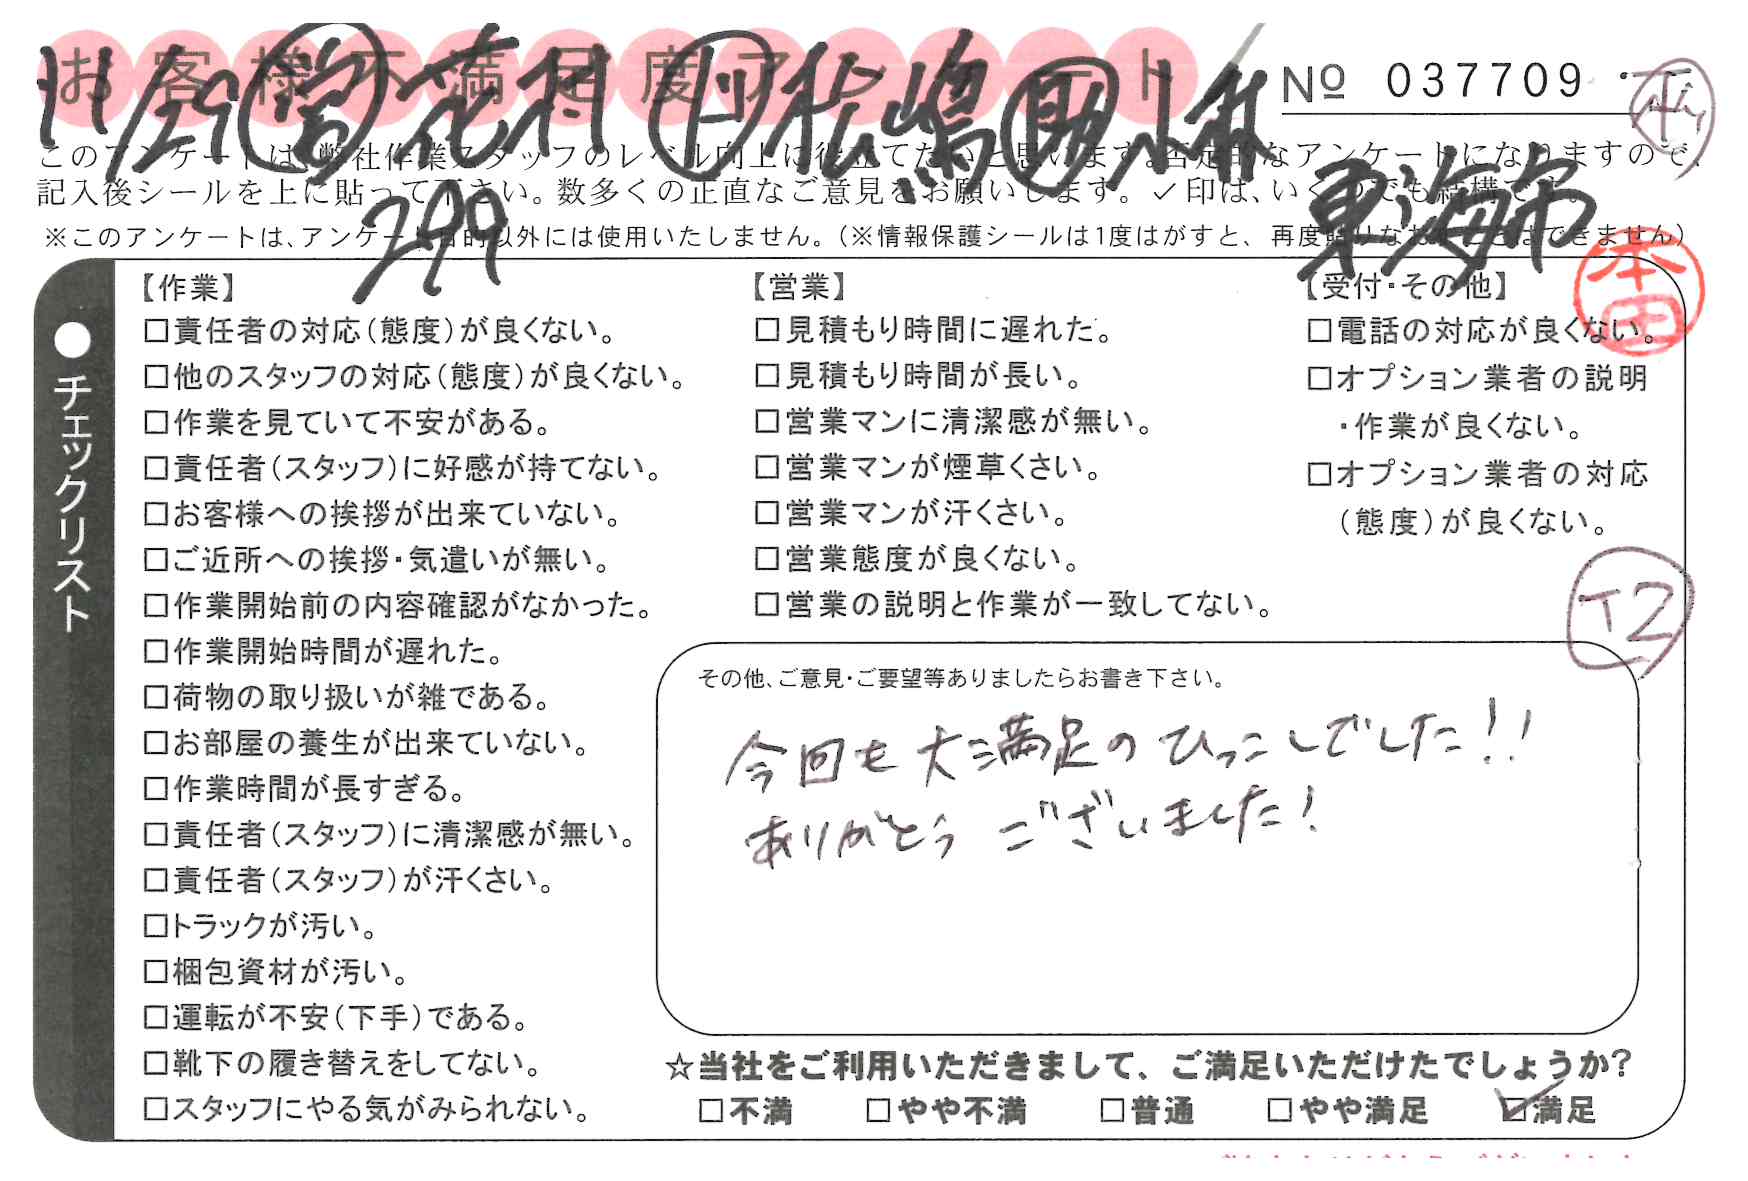 お客様不満足度アンケート
11/29 営 花村 松嶋 助 小林
No 037709
このアンケートは、弊社作業スタッフのレベル向上に役立てたいと思います。否定的なアンケートになりますので、
記入後シールを上に貼って下さい。数多くの正直なご意見をお願いします。✓印は、いくつでも結構です。
299
東海市
※このアンケートは、アンケート目的以外には使用いたしません。（※情報保護シールは1度はがすと、再度貼りなおすことはできません）
本田
●チェックリスト
【作業】
□責任者の対応（態度）が良くない。
□他のスタッフの対応（態度）が良くない。
□作業を見ていて不安がある。
□責任者（スタッフ）に好感が持てない。
□お客様への挨拶が出来ていない。
□ご近所への挨拶・気遣いが無い。
□作業開始前の内容確認がなかった。
□作業開始時間が遅れた。
□荷物の取り扱いが雑である。
□お部屋の養生が出来ていない。
□作業時間が長すぎる。
□責任者（スタッフ）に清潔感が無い。
□責任者（スタッフ）が汗くさい。
□トラックが汚い。
□梱包資材が汚い。
□運転が不安（下手）である。
□靴下の履き替えをしてない。
□スタッフにやる気がみられない。
【営業】
□見積もり時間に遅れた。
□見積もり時間が長い。
□営業マンに清潔感が無い。
□営業マンが煙草くさい。
□営業マンが汗くさい。
□営業態度が良くない。
□営業の説明と作業が一致してない。
【受付・その他】
□電話の対応が良くない。
□オプション業者の説明
・作業が良くない。
□オプション業者の対応
（態度）が良くない。
T2
その他、ご意見・ご要望等ありましたらお書き下さい。
今回も大満足のひっこしでした!!
ありがとうございました!
☆当社をご利用いただきまして、ご満足いただけたでしょうか?
□不満 □やや不満 □普通 □やや満足 ☑満足